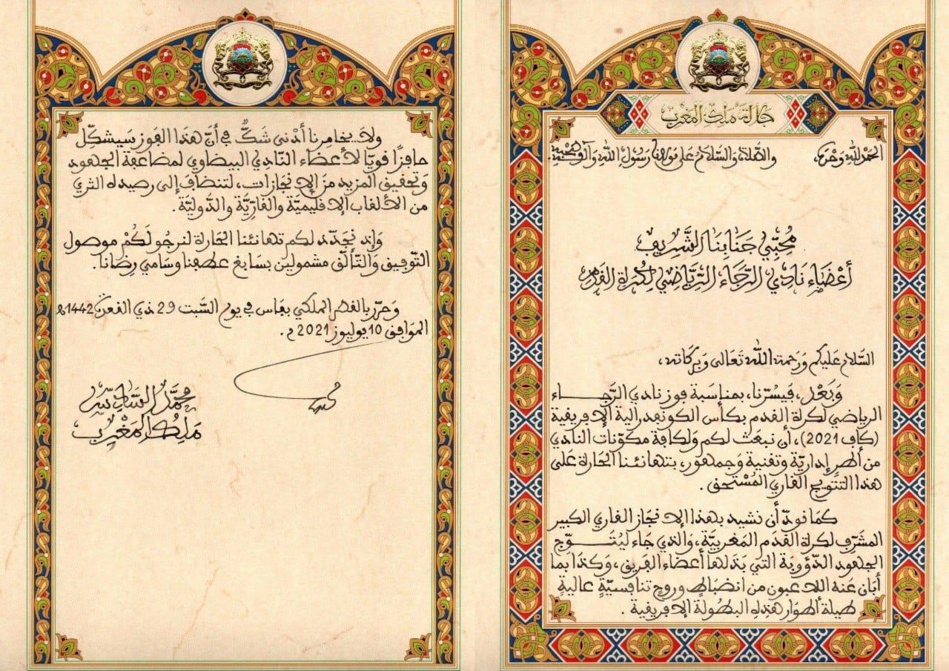 جلالة ملك المغرب
الحمد لله وحده، والصلاة والسلام على مولانا رسول الله وآله وصحبه
محبي جنابنا الشريف
أعضاء نادي الرجاء الرياضي لكرة القدم
السلام عليكم ورحمة الله تعالى وبركاته،
وَبَعْد، فيسّرنا، بمناسبة فوز نادي الرجـــاء
الرياضي لكرة القدم بكأس الكونفدرالية الإفريقية
(كاف 2021)، أن نبعث لكم ولكافة مكوّنات النادي
من أطر إدارية وتقنية وجمهور، بتهانئنا الحارة على
هذا التتويج القاري المُسْتحق.
كما نودّ أن نشيد بهذا الإنجاز القاري الكبير
المشرّف لكرة القدم المغربية، والذي جاء ليُتَــوّج
الجهود الدّؤوبة التي بَذلها أعضاء الفريق، وكذا بما
أبان عنه اللاعبون من انضباط وروح تنافسيّة عالية
طيلة أطوار هذه البطولة الإفريقية.
ولا يخامرنا أدنى شكّ في أنّ هذا الفوز سيشكّل
حافزًا قويّا لأعضاء النادي البيضاوي لمضاعفة الجهود
وتحقيق المزيد من الإنجازات، لتنضاف إلى رصيده الثري
من الألقاب الإقليميّة والقاريّة والدّوليّة.
وإذ نجدّد لكم تهانئنا الحارة لنرجو لكُم موصول
التوفيق والتألّق مشمولين بسابغ عطفنا وسامي رضانا.
وحرّر بالقصر الملكي بفاس في يوم السّبت 29 ذي القعدة 1442هـ
الموافق 10 يوليوز 2021م.
محمّد السادس
ملك المَغْرب